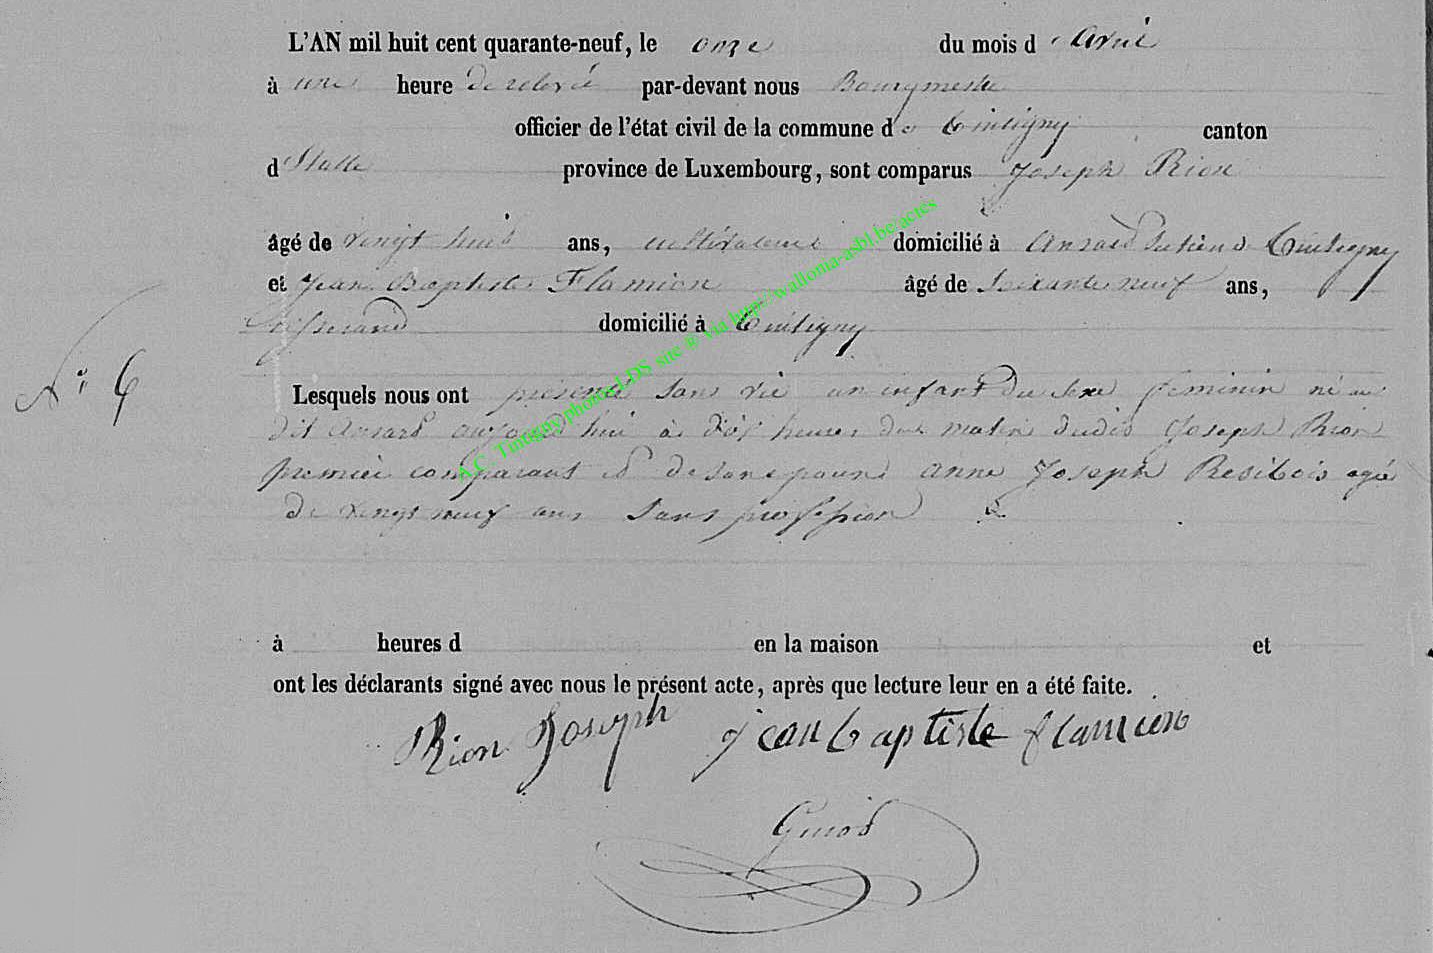 L'AN mil huit cent quarante-neuf, le onze du mois d'Avril
à une heure de relevée par-devant nous Bourgmestre
officier de l'état civil de la commune de Tintigny canton
d'Etalle province de Luxembourg, sont comparus Joseph Rion
âgé de vingt huit ans, cultivateur domicilié à Ansart Tintigny
et Jean Baptiste Flamion âgé de Soixante neuf ans,
Tisserand domicilié à Tintigny
N° 6
Lesquels nous ont présenté sans vie un enfant du sexe feminin né au
dit Ansart aujourd'hui à dix heures du matin dudit Joseph Rion
premier comparant et de son epouse anne Joseph Resibois agée
de vingt neuf ans Sans profession
à heures d en la maison et
ont les déclarants signé avec nous le présent acte, après que lecture leur en a été faite.
Rion Joseph jean baptiste flamion
Guiod
A.C. Tintigny photos LDS site ® via http://wallonia-asbl.be/actes